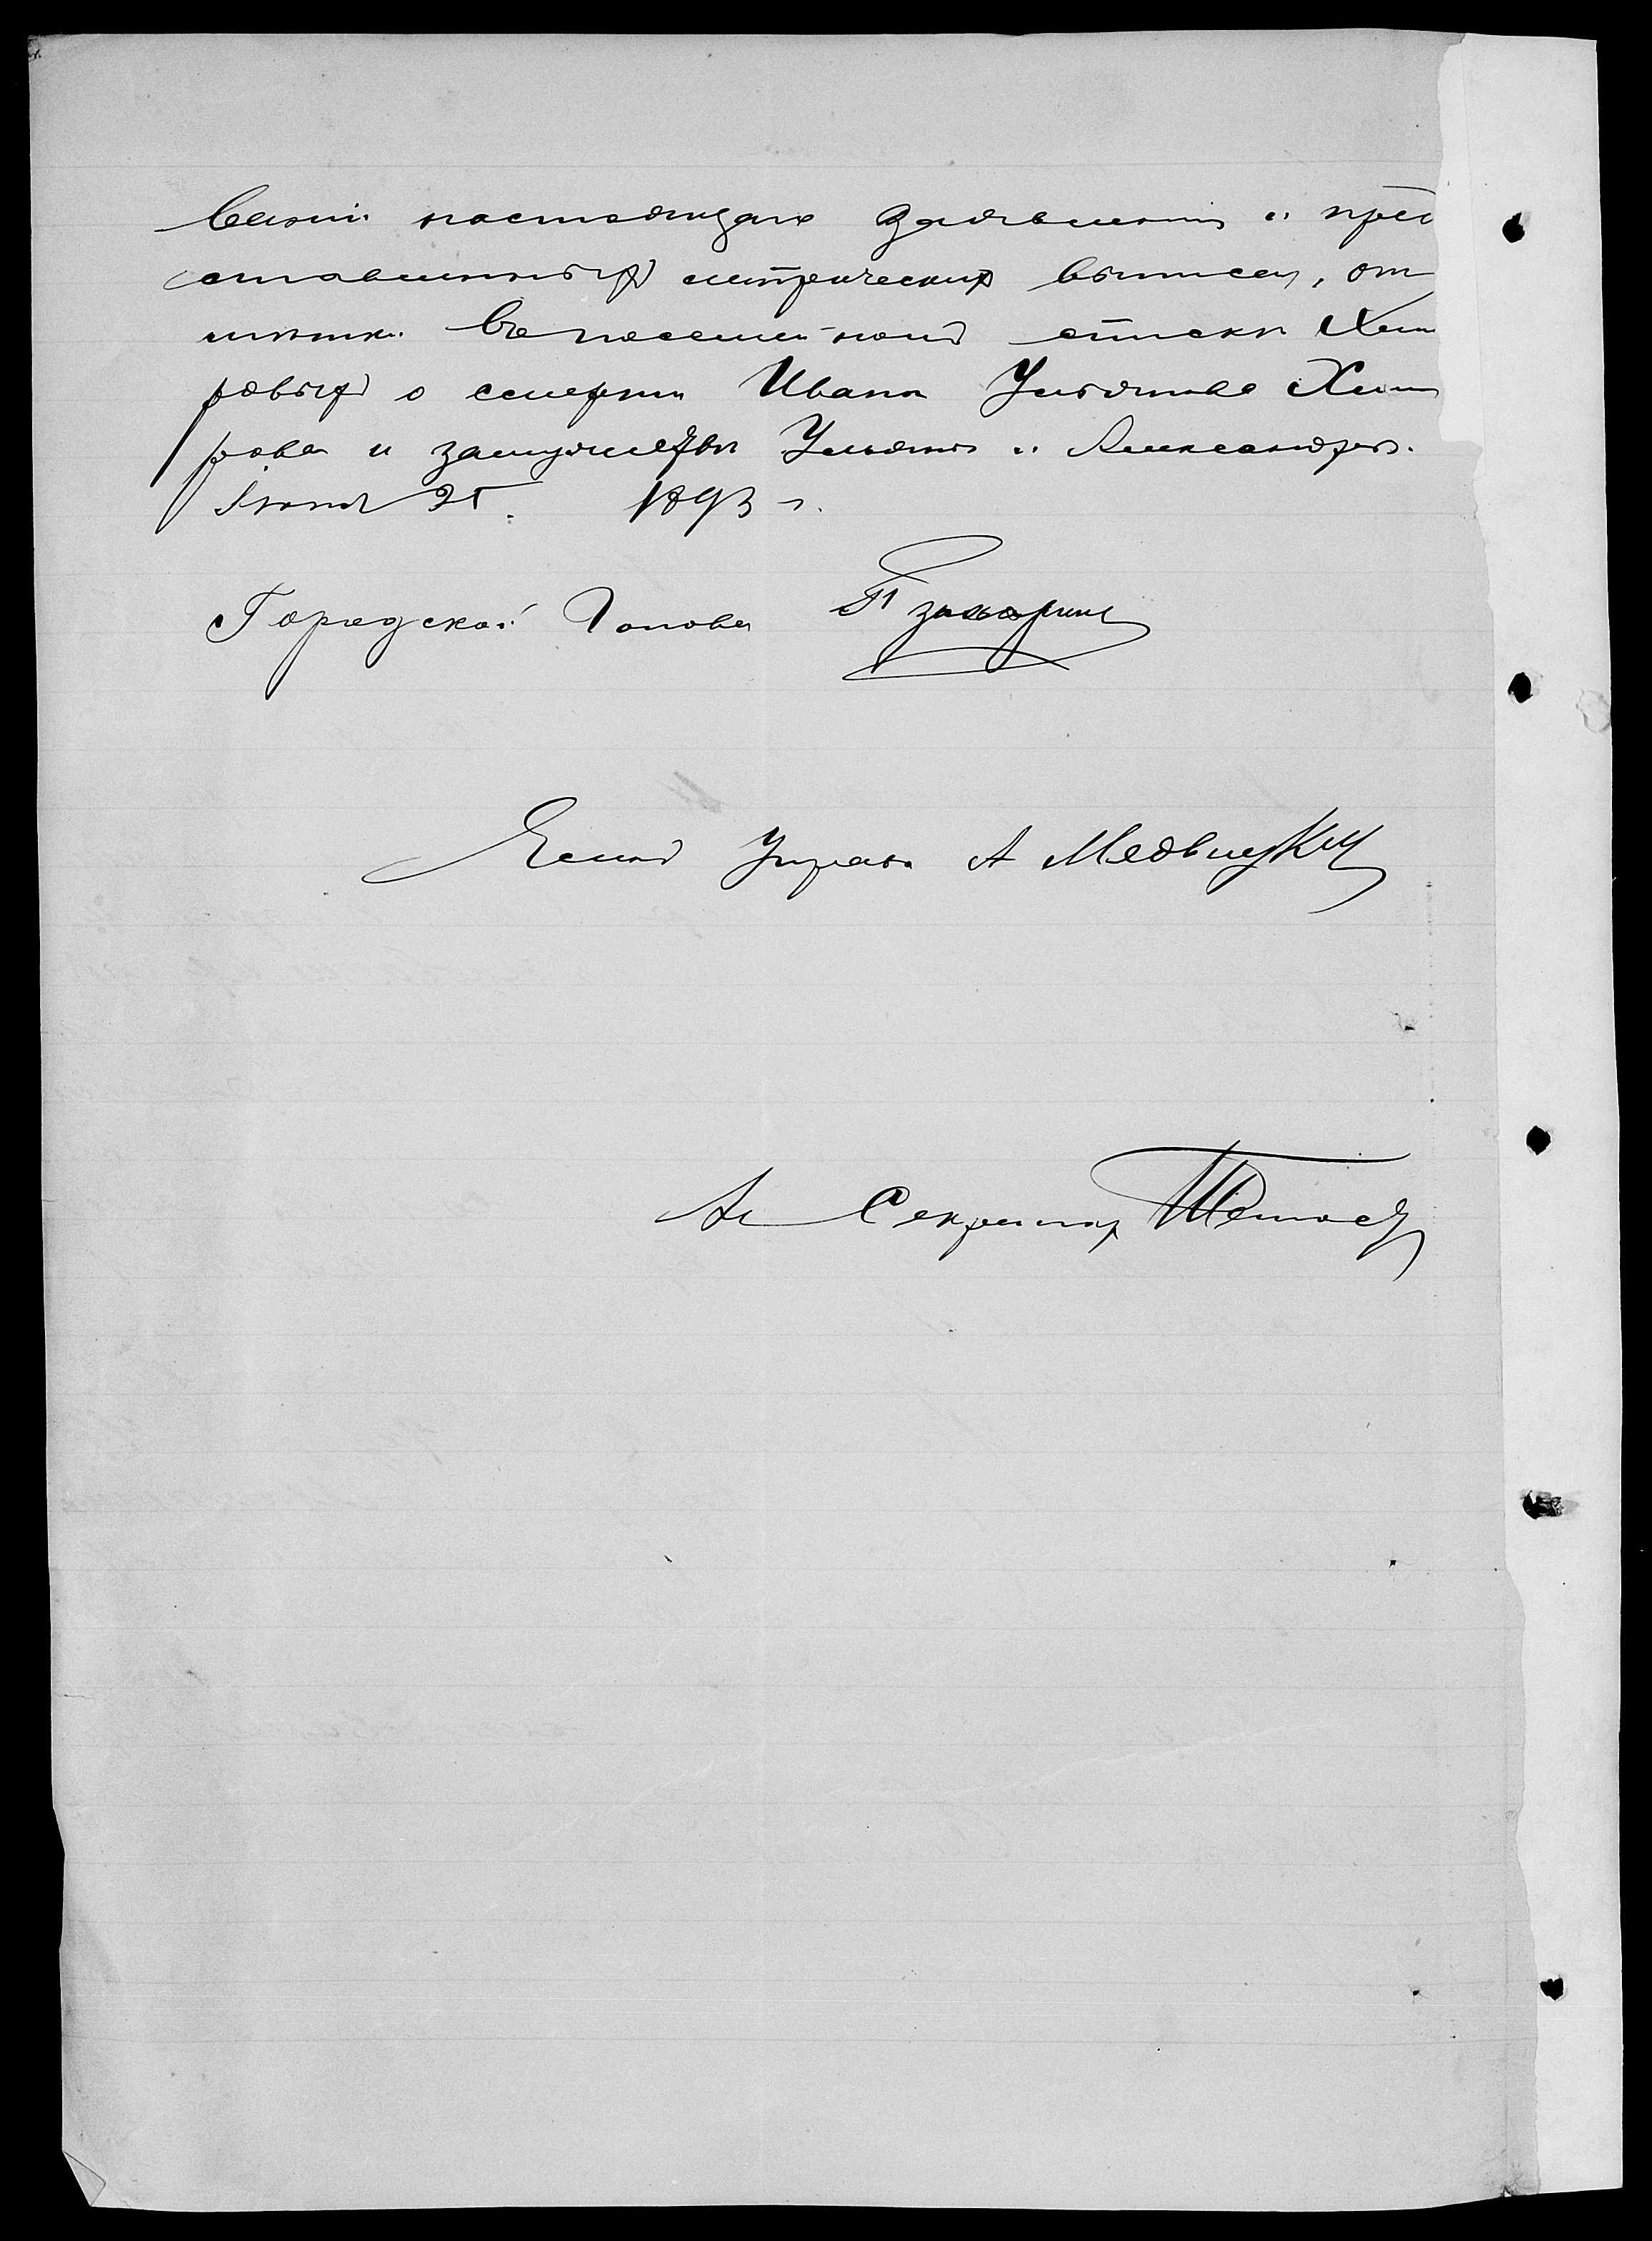 ваніи настоящаго заявленія и пред
ставленныхъ метрическихъ выписей, от
мѣтки въ посемейномъ спискѣ Хит
ровыхъ о смерти Ивана Ульянова Хит
рова и замужествѣ Ульяны и Александры.
Іюня 25. 1893 г.
Городской Голова
Членъ Управы А Медвѣ
Секретарь